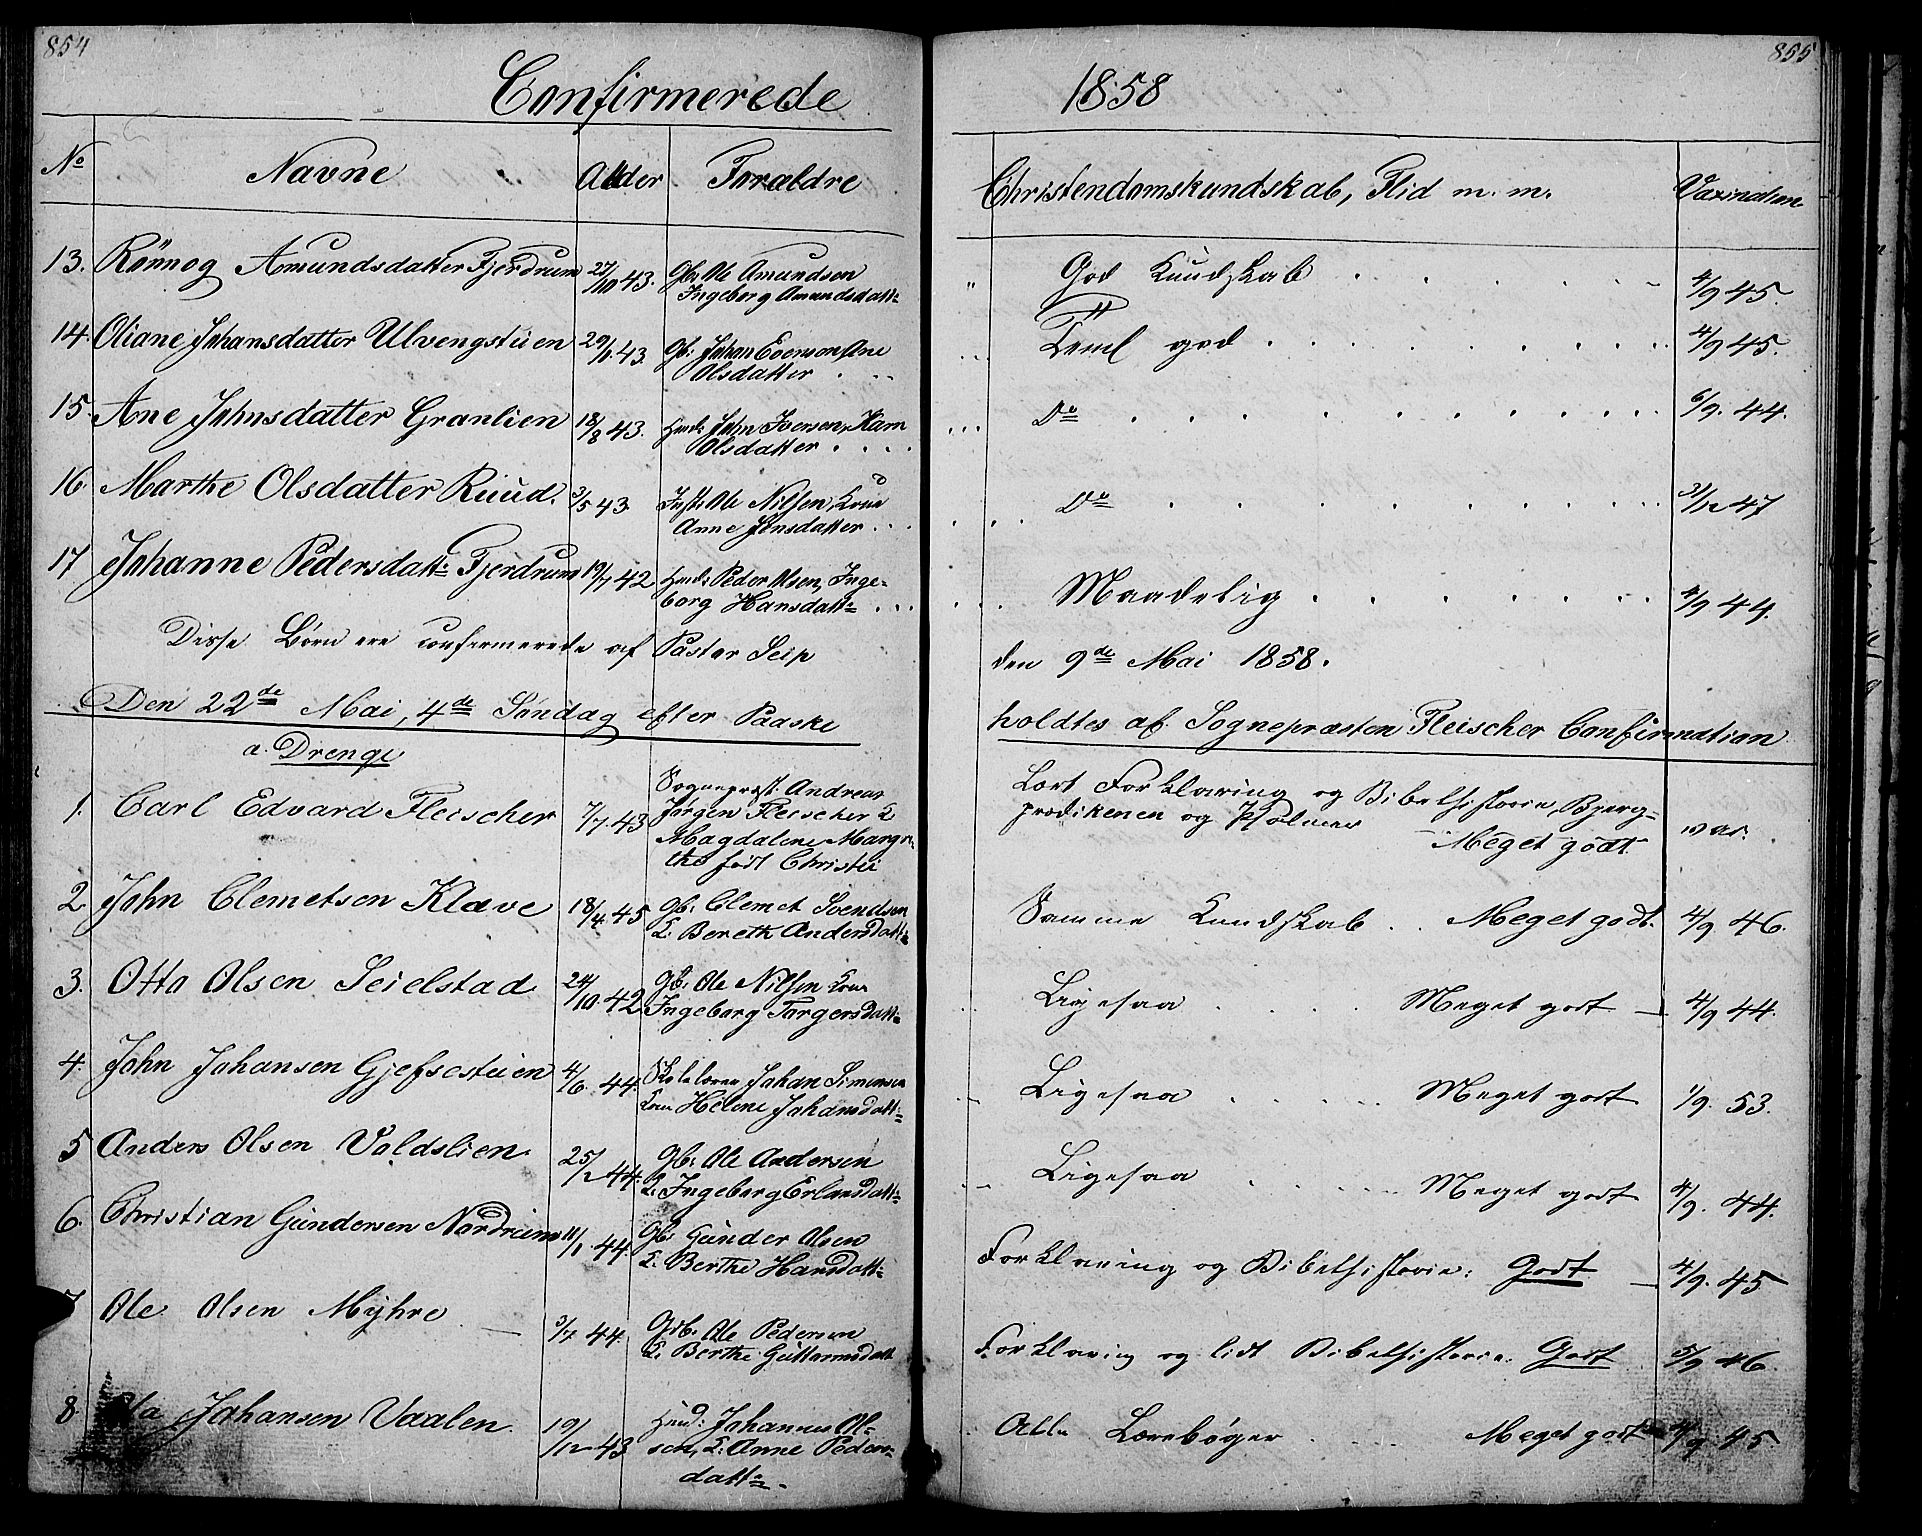 854
Confirmerede
No Navne Alder Forældre
13. Rønnog Amundsdatter Fjerdrum 27/10 43. Gb: Ole Amundsen
Ingeborg Amundsdatt:
14. Oliane Johansdatter Ulvengstuen 29/1 43. Gb: Johan Evensen, Ane
Olsdatter
15. Ane Johnsdatter Granlien 18/8 43. Huusm: John Iversen, Karn
Olsdatter
16. Marthe Olsdatter Ruud. 3/5 43. Inst: Ole Nilsen, Kone
Anne Jensdatter
17 Johanne Pedersdatt: Fjerdrum 19/7 42 Huusm: Peder Olsen, Inge-
borg Hansdatt:
Disse Børn ere confirmerede af Pastor Seip
Den 22de Mai, 4de Søndag efter Paaske
a. Drenge
1. Carl Edvard Fleischer 7/7 43 Sognepræst: Andreas
Jørgen Fleischer &
Magdalene Margre-
the født Christie
2 John Clemetsen Klæve 18/4 45 Gb: Clemet Svendsen
K. Bereth Andersdatt:
3. Otto Olsen Seielstad 24/10 42 Gb: Ole Nilsen Kone
Ingeborg Torgersdatt:
4. John Johansen Gjefsestuen 4/6 44. Skolelærer Johan Simensen
Kone Helene Johansdatt:
5 Anders Olsen Voldslien 25/2 44. Gb: Ole Andersen
K. Ingeborg Erlandsdatt:
6. Christian Gundersen Nordrum 11/1 44. Gb: Gunder Olsen
K. Berthe Hansdatt:
7 Ole Olsen Myhre 3/7 44. Gb: Ole Pedersen
K. Berthe Guttormsdatt
8. Ola Johansen Vaalen 19/12 43 Huusm: Johannes Ol-
sen, K: Anne Peders-
datt:
855
1858
Christendomskundskab, Flid m. m. Vaxination
God Kundskab 4/9 45.
Teml god 4/9 45.
Do 6/9. 44.
Do 31/12 47
Maadelig 4/9 44.
den 9de Mai 1858.
holdtes af Sognepræsten Fleischer Confirmation
Lært Forklaring og Bibelhistorie, Bjerg-
prædikenen og Psalmer Meget godt. vac.
Samme Kundskab Meget godt. 4/9. 46.
Ligesaa Meget godt 4/9 44.
Ligesaa Meget godt 1/9. 53.
Ligesaa Meget godt 4/9. 44.
Forklaring og Bibelhistorie: Godt 4/9. 45
Forklaring og lidt Bibelhistorie: Godt 5/9 46
Alle Lærebøger Meget godt 4/9 45